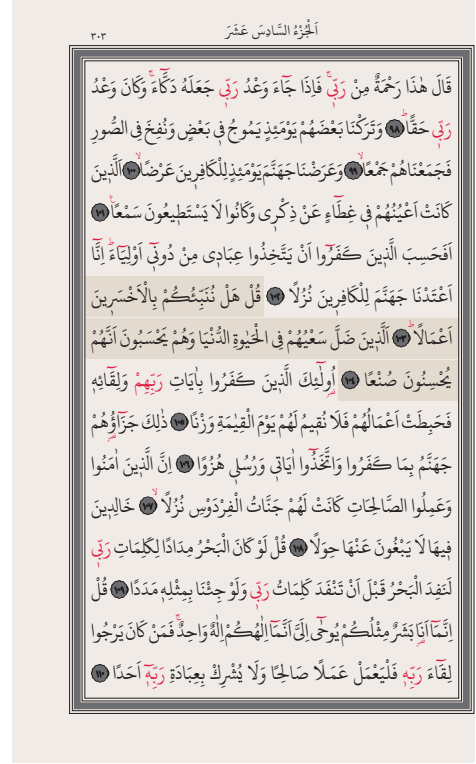 اَلْجُزْءُ السَّادِسَ عَشَرَ
٣٠٣
قَالَ هٰذَا رَحْمَةٌ مِنْ رَبّ۪يۚ فَاِذَا جَٓاءَ وَعْدُ رَبّ۪ي جَعَلَهُ دَكَّٓاءَۚ وَكَانَ وَعْدُ
رَبّ۪ي حَقًّاۜ ﴿٩٨﴾ وَتَرَكْنَا بَعْضَهُمْ يَوْمَئِذٍ يَمُوجُ ف۪ي بَعْضٍ وَنُفِخَ فِي الصُّورِ
فَجَمَعْنَاهُمْ جَمْعًاۙ ﴿٩٩﴾ وَعَرَضْنَا جَهَنَّمَ يَوْمَئِذٍ لِلْكَافِر۪ينَ عَرْضًاۙ ﴿١٠٠﴾ اَلَّذ۪ينَ
كَانَتْ اَعْيُنُهُمْ ف۪ي غِطَٓاءٍ عَنْ ذِكْر۪ي وَكَانُوا لَا يَسْتَط۪يعُونَ سَمْعًا۟ ﴿١٠١﴾
اَفَحَسِبَ الَّذ۪ينَ كَفَرُٓوا اَنْ يَتَّخِذُوا عِبَاد۪ي مِنْ دُون۪ٓي اَوْلِيَٓاءَۜ اِنَّٓا
اَعْتَدْنَا جَهَنَّمَ لِلْكَافِر۪ينَ نُزُلًا ﴿١٠٢﴾ قُلْ هَلْ نُنَبِّئُكُمْ بِالْاَخْسَر۪ينَ
اَعْمَالًاۜ ﴿١٠٣﴾ اَلَّذ۪ينَ ضَلَّ سَعْيُهُمْ فِي الْحَيٰوةِ الدُّنْيَا وَهُمْ يَحْسَبُونَ اَنَّهُمْ
يُحْسِنُونَ صُنْعًا ﴿١٠٤﴾ اُو۬لٰٓئِكَ الَّذ۪ينَ كَفَرُوا بِاٰيَاتِ رَبِّهِمْ وَلِقَٓائِه۪
فَحَبِطَتْ اَعْمَالُهُمْ فَلَا نُق۪يمُ لَهُمْ يَوْمَ الْقِيٰمَةِ وَزْنًا ﴿١٠٥﴾ ذٰلِكَ جَزَٓاؤُ۬هُمْ
جَهَنَّمُ بِمَا كَفَرُوا وَاتَّخَذُٓوا اٰيَات۪ي وَرُسُل۪ي هُزُوًا ﴿١٠٦﴾ اِنَّ الَّذ۪ينَ اٰمَنُوا
وَعَمِلُوا الصَّالِحَاتِ كَانَتْ لَهُمْ جَنَّاتُ الْفِرْدَوْسِ نُزُلًاۙ ﴿١٠٧﴾ خَالِد۪ينَ
ف۪يهَا لَا يَبْغُونَ عَنْهَا حِوَلًا ﴿١٠٨﴾ قُلْ لَوْ كَانَ الْبَحْرُ مِدَادًا لِكَلِمَاتِ رَبّ۪ي
لَنَفِدَ الْبَحْرُ قَبْلَ اَنْ تَنْفَدَ كَلِمَاتُ رَبّ۪ي وَلَوْ جِئْنَا بِمِثْلِه۪ مَدَدًا ﴿١٠٩﴾ قُلْ
اِنَّمَٓا اَنَا۬ بَشَرٌ مِثْلُكُمْ يُوحٰٓى اِلَيَّ اَنَّمَٓا اِلٰهُكُمْ اِلٰهٌ وَاحِدٌۚ فَمَنْ كَانَ يَرْجُوا
لِقَٓاءَ رَبِّه۪ فَلْيَعْمَلْ عَمَلًا صَالِحًا وَلَا يُشْرِكْ بِعِبَادَةِ رَبِّه۪ٓ اَحَدًا ﴿١١٠﴾